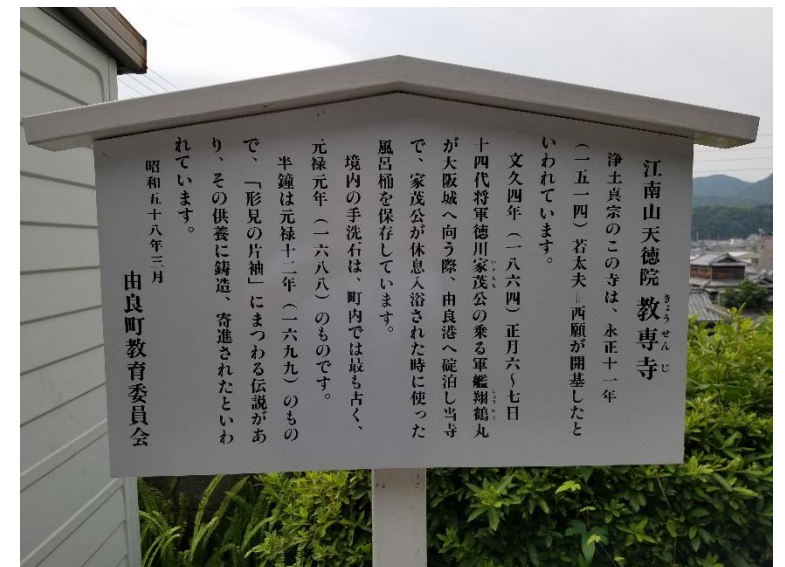 江南山天徳院 教専寺
きょうせんじ
浄土真宗のこの寺は、永正十一年
(一五一四)若太夫=西願が開基したと
いわれています。
文久四年(一八六四)正月六〜七日
十四代将軍徳川家茂公の乗る軍艦翔鶴丸
いえもち
しょうかく
が大阪城へ向う際、由良港へ碇泊し当寺
で、家茂公が休息入浴された時に使った
風呂桶を保存しています。
境内の手洗石は、町内では最も古く、
元禄元年(一六八八)のものです。
半鐘は元禄十二年(一六九九)のもの
で、「形見の片袖」にまつわる伝説があ
り、その供養に鋳造、寄進されたといわ
れています。
昭和五十八年三月
由良町教育委員会